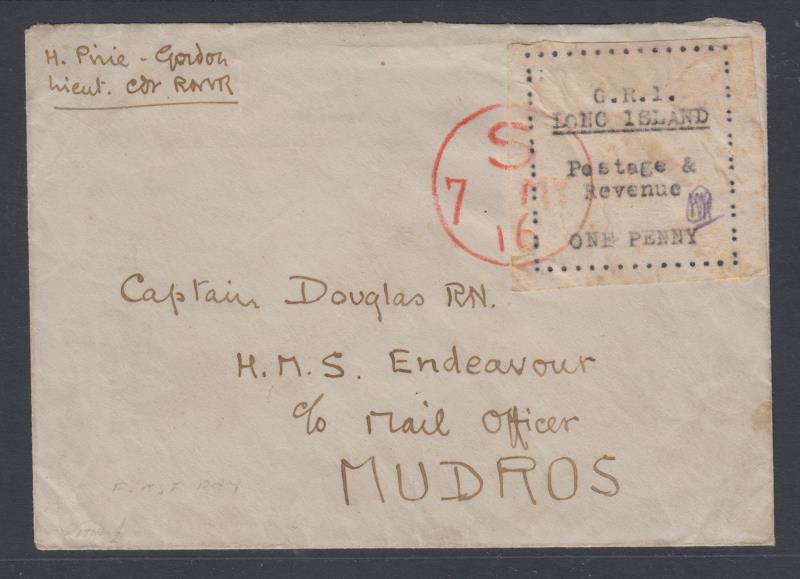 H. Pirie-Gordon
Lieut. Cdr RNVR
G.R.I.
LONG ISLAND
Postage &
Revenue
ONE PENNY
S
7 MY
16
Captain Douglas RN.
H.M.S. Endeavour
c/o Mail Officer
MUDROS
FIRST DAY